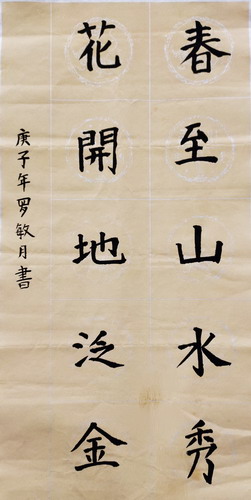 春至山水秀
花開地泛金
庚子年罗敏月書